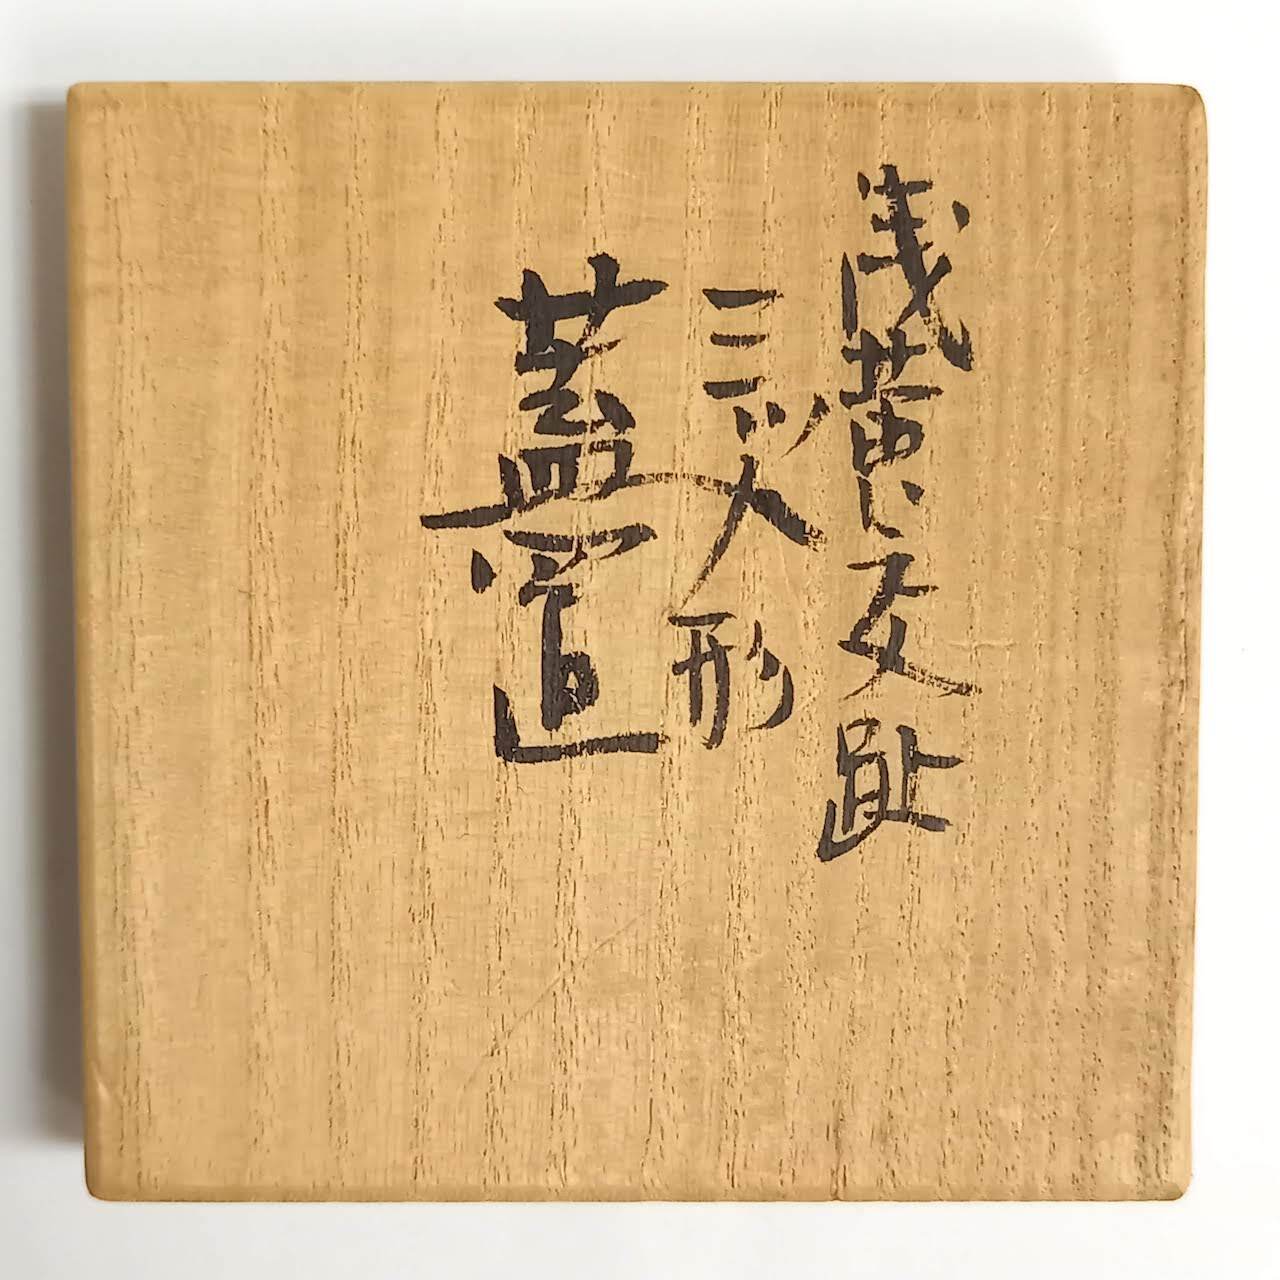 浅黄交趾
三ツ人形
蓋置